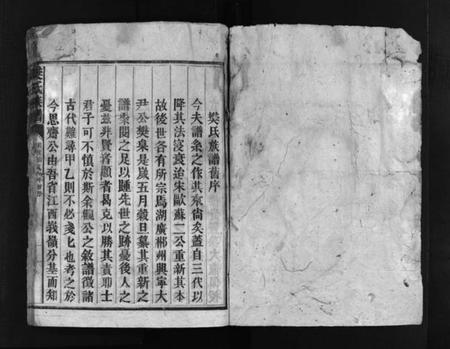 樊氏族譜舊序
今夫譜系之作其來尙矣蓋自三代以
降其法寖衰迨宋歐蘇二公重新其本
故後世各有所宗焉湖廣郴州興寧大
尹公樊泉是歲五月穀旦纂其重新之
譜以閱之足以踵先世之跡憂後人之
憂兹非賢者顯者曷克以勝其責耶士
君子可不慎於斯余觀公之敘譜徵諸
古代雖尋甲乙則不必戔匕也考之於
今思齋公由吾省江西義儀分基而知